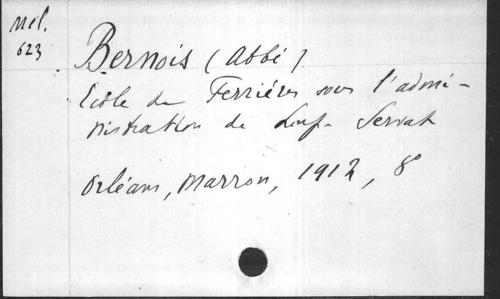 Mel.
623
Bernois (Abbé)
Ecole de Ferrières sous l'admi-
nistration de Loup-Servat
Orléans, Marron, 1912, 8°